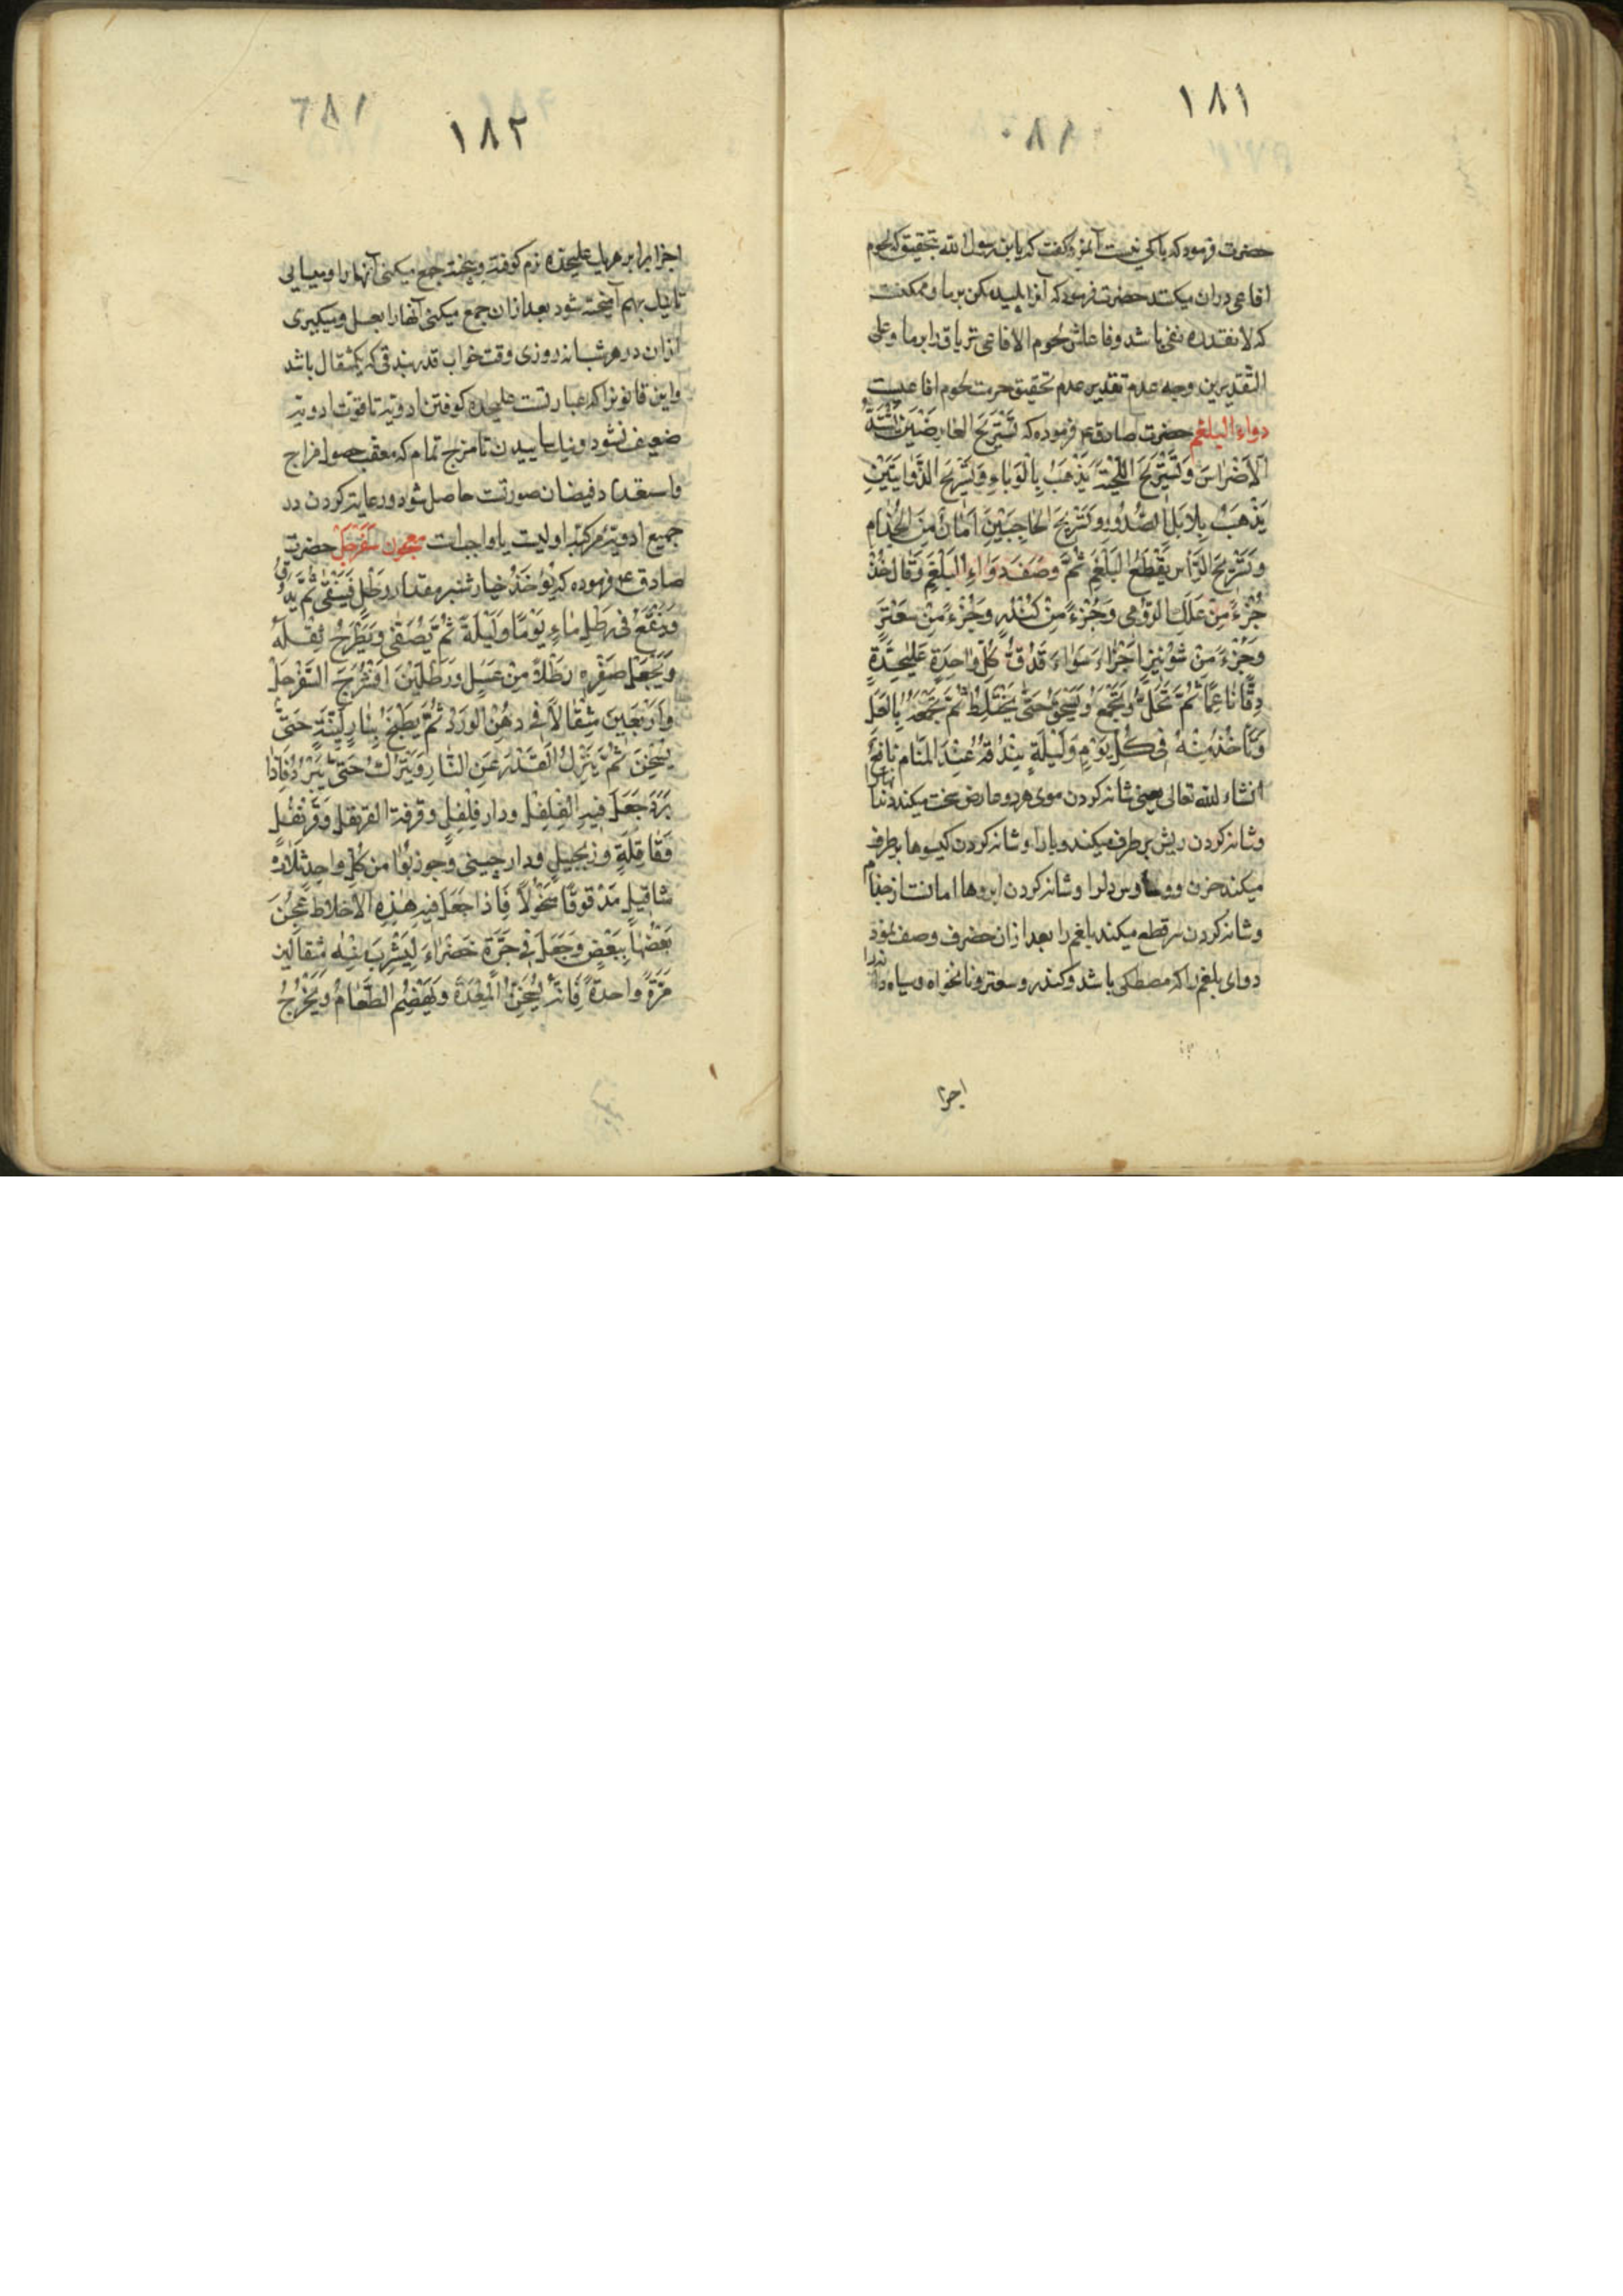 ١٨١
حضرت فرمود که باکی نیست آنمرد کفت که یابن رسول الله بتحقیق که لحوم
افاعی دران میکنند حضرت فرمود که آنرا پلید مکن برما و ممکنست
که لا تقذره نهی باشد و فاعلش لحوم الافاعی تریاق را برما و علی
التقدیرین وجه عدم تقذیر عدم تحقیق حرمت لحوم افاعیست
دواء البلغم حضرت صادق ع فرموده که تَسْریحَ العارِضَیْنِ یَشُدُّ
الاَضْراسَ وَ تَسْریحَ اللِّحْیَةِ یَذْهَبُ بِالْوَباءِ وَ تَسْریحَ الذُّوابَتَیْنِ
یَذْهَبُ بِبَلابِلِ الصُّدُورِ وَ تَسْریحَ الحاجِبَیْنِ اَمانٌ مِنَ الجُذامِ
وَ تَسْریحَ الرَّأسِ یَقْطَعُ البَلْغَمَ ثُمَّ وَصَفَ دَواءِ البَلْغَمِ وَ قالَ خُذْ
جُزْءً مِنْ عَلَكِ الرُّومی وَ جُزْءً مِنْ کُنْدُرٍ وَ جُزْءً مِنْ سَعْتَرٍ
وَ جُزْءً مِنْ شُوْنیزٍ اَجْزاءَ سَواءَ تَدُقُّ کُلَّ واحِدَةٍ عَلیٰحِدَةٍ
دِقًّا ناعِمًا ثُمَّ تَنْخَلُ وَ تَجْمَعُ وَ تَسْحَقُ حَتّیٰ یَخْتَلِطَ ثُمَّ تَجْمَعُهُ بِالعَسَلِ
وَ تَأخُذُ مِنْهُ فی کُلِّ یَوْمٍ وَ لَیْلَةٍ بُنْدُقَةً عِنْدَ المَنامِ نافِعٌ
انشاء الله تعالی یعنی شانه کردن موی هر دو عارض سخت میکند دندانها را
و شانه کردن ریش برطرف میکند وبا را و شانه کردن کیسوها برطرف
میکند حزن و وساوس دلرا و شانه کردن ابروها امانست از جذام
و شانه کردن سر قطع میکند بلغم را بعد ازان حضرت وصف نمود
دوای بلغم را که مصطکی باشد و کندر و سعتر و نانخواه و سیاه دانه را
اجزا
١٨٢
اجزا برابر هریك علیحده نرم کوفته و بیخته جمع میکنی آنها را و میسایی
تا نیك بهم آمیخته شود بعد ازان جمع میکنی آنها را بعسل و میکیری
ازان در هر شبانه روزی وقت خواب قدر بندقی که یکمثقال باشد
و این قانونرا که عبارتست علیحده کوفتن ادویه تا قوت ادویه
ضعیف نشود و نیك ساییدن تا مزج تمام که معقب حصول مزاج
و استعداد فیضان صورتست حاصل شود و رعایت کردن در
جمیع ادویهٔ مرکبه اولیست یا واجبات معجون سفرجل حضرت
صادق ع فرموده که یُؤْخَذُ خیار شنبر مقدار رَطْلٍ فَیُنَقّیٰ ثُمَّ یُدَقُّ
وَ یُنْقَعُ فی رَطْلِ ماءٍ یَوْمًا وَ لَیْلَةً ثُمَّ یُصَفّیٰ وَ یُطْرَحُ ثِفْلُهُ
وَ یُجْعَلُ صَفْوِهِ رَطْلاً مِنْ عَسَلٍ وَ رَطْلَیْنِ اَفْشُرَجَ السَّفَرْجَلِ
وَ اَرْبَعینَ مِثْقالاً فی دُهْنِ الوَرْدِ ثُمَّ یُطْبَخُ بِنارٍ لَیِّنَةٍ حَتّیٰ
یَسْخَنَ ثُمَّ یَنْزِلُ القِدْرَ عَنِ النّارِ وَ یَتْرُكُ حَتّیٰ یَبْرُدَ فَاِذا
بَرَدَ جَعَلَ فیهِ الْفِلْفِلَ و دار فِلْفِلٍ و قرفة القرنفل وَ قَرَنْفُلٍ
وَ قاقِلَةٍ و زنجبیلٍ و دار چینی وَ جوز بَوّا من کُلِّ واحِدٍ ثَلاثَ
مثاقیل مَدْقوقًا مَنْخُولاً فَاِذا جَعَلَ فیهِ هٰذِهِ الاَخْلاطَ عُجِنَ
بَعْضُها بِبَعْضٍ وَ جَعَلَ فی جَرَّةٍ خَضْراءَ لِیَشْرِبَ مِنْه مثقالین
مَرَّةً واحدةً فَاِنَّهُ یُسْخِنُ المِعْدَةَ وَ یَهْضِمُ الطَّعامَ وَ یُخْرِجُ